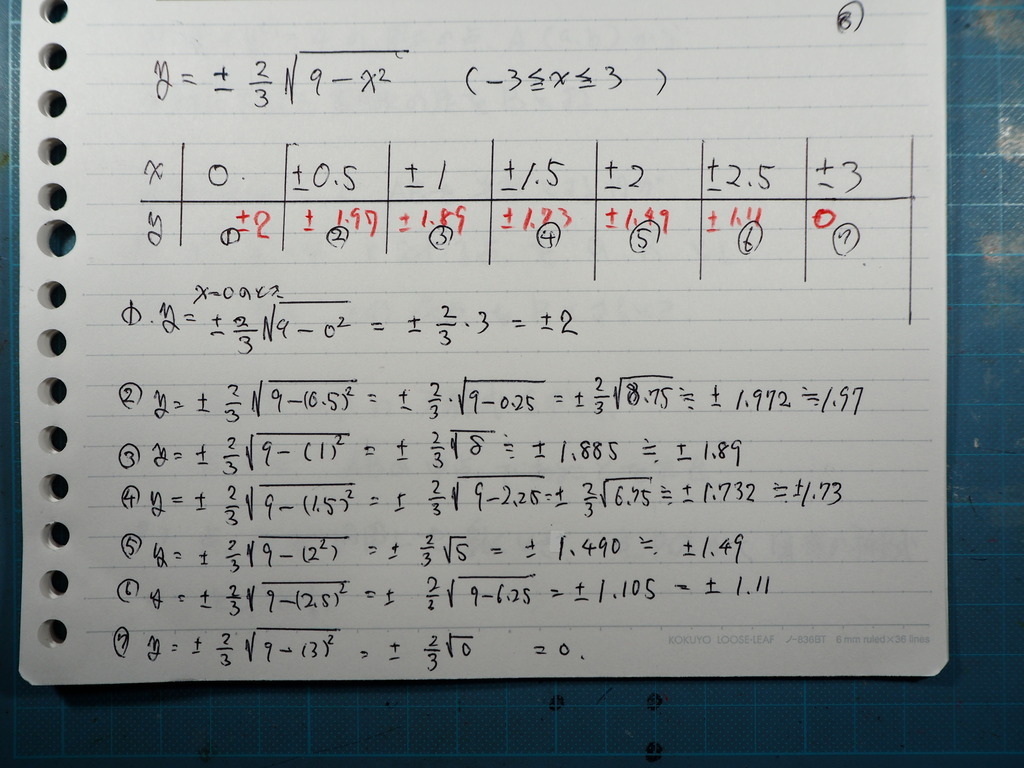 ⑧
y = ± 2/3 √(9 − x²) (−3 ≦ x ≦ 3 )
x 0. ±0.5 ±1 ±1.5 ±2 ±2.5 ±3
y ±2 ± 1.97 ±1.89 ±1.73 ±1.49 ±1.11 0
① ② ③ ④ ⑤ ⑥ ⑦
x=0のとき
①. y = ± 2/3 √(9 − 0²) = ± 2/3 · 3 = ±2
② y = ± 2/3 √(9−(0.5)²) = ± 2/3 · √(9−0.25) = ± 2/3 √8.75 ≒ ± 1.972 ≒ 1.97
③ y = ± 2/3 √(9−(1)²) = ± 2/3 √8 ≒ ± 1.885 ≒ ± 1.89
④ y = ± 2/3 √(9−(1.5)²) = ± 2/3 √(9−2.25) = ± 2/3 √6.75 ≒ ± 1.732 ≒ ±1.73
⑤ y = ± 2/3 √(9−(2²)) = ± 2/3 √5 = ± 1.490 ≒ ±1.49
⑥ y = ± 2/3 √(9−(2.5)²) = ± 2/3 √(9−6.25) = ± 1.105 = ± 1.11
⑦ y = ± 2/3 √(9−(3)²) = ± 2/3 √0 = 0.
KOKUYO LOOSE-LEAF ノ-836BT 6 mm ruled×36 lines